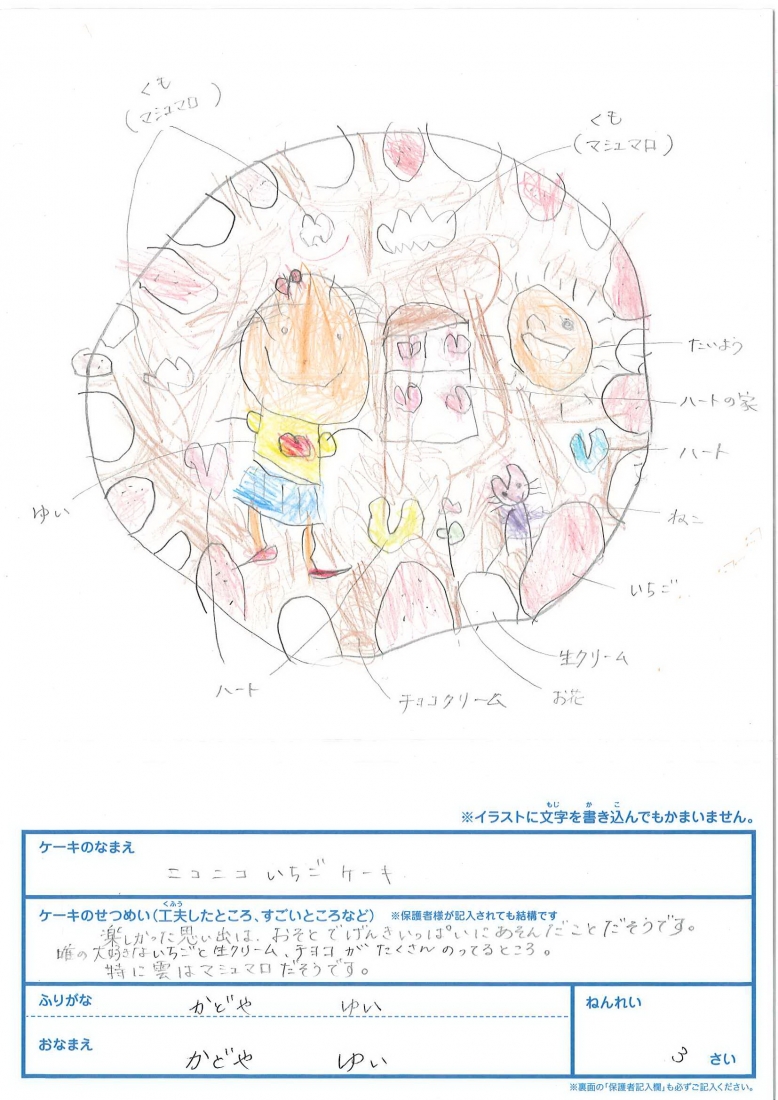 くも
(マシュマロ)
くも
(マシュマロ)
たいよう
ハートの家
ハート
ゆい
ねこ
いちご
生クリーム
ハート
チョコクリーム
お花
※イラストに文字を書き込んでもかまいません。
もじ か こ
ケーキのなまえ
ニコニコ いちご ケーキ
くふう
ケーキのせつめい(工夫したところ、すごいところなど) ※保護者様が記入されても結構です
楽しかった思い出は、おそとでげんきいっぱいにあそんだことだそうです。
唯の大好きないちごと生クリーム、チョコがたくさんのってるところ。
特に雲はマシュマロだそうです。
ふりがな かどや ゆい
ねんれい
おなまえ かどや ゆい
3 さい
※裏面の「保護者記入欄」も必ずご記入ください。